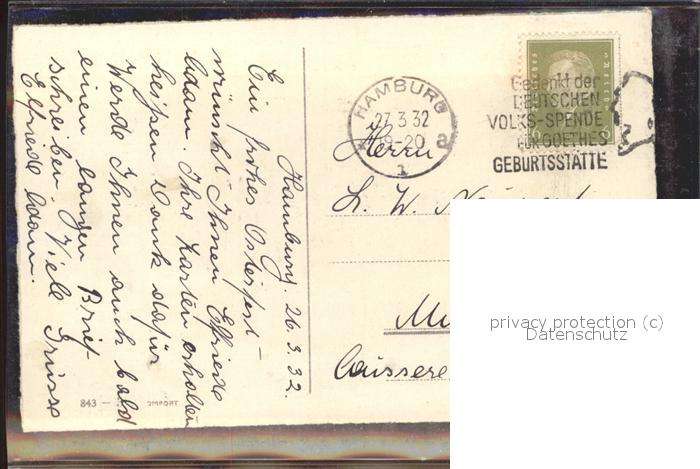 Hamburg 26.3.32.
Ein frohes Osterfest
wünscht Ihnen Elfriede
Adam. Ihre Karten erhalten
heißen Dank dafür
Werde Ihnen auch bald
einen langen Brief
schreiben. Viele Grüsse
Elfriede Adam.
843 - IMPORT
HAMBURG
27.3.32
-20
1
Gedenkt der
DEUTSCHEN
VOLKS-SPENDE
FÜR GOETHES
GEBURTSSTÄTTE
Herrn
L. W.
privacy protection (c)
Datenschutz